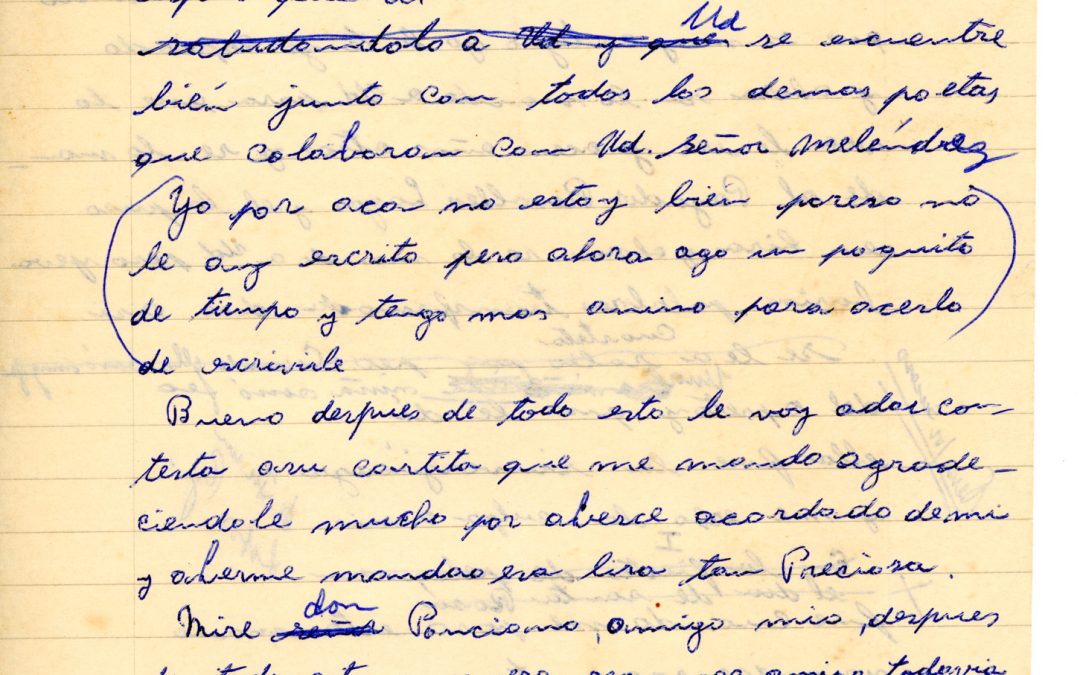 saludandolo a Ud. y que Ud se encuentre
bién junto con todos los demas poetas
que colaboran con Ud. señor Meléndez
Yo por aca no estoy bien poreso no
le ay escrito pero ahora ago un poquito
de tiempo y tengo mas animo para acerlo
de escrivirle
Bueno despues de todo esto le voy adar con-
testa asu cartita que me mando agrade-
ciendole mucho por aberce acordado demi
y aberme mandao esa lira tan Preciosa.
Mire señor don Ponciano, amigo mio, despues
todavia